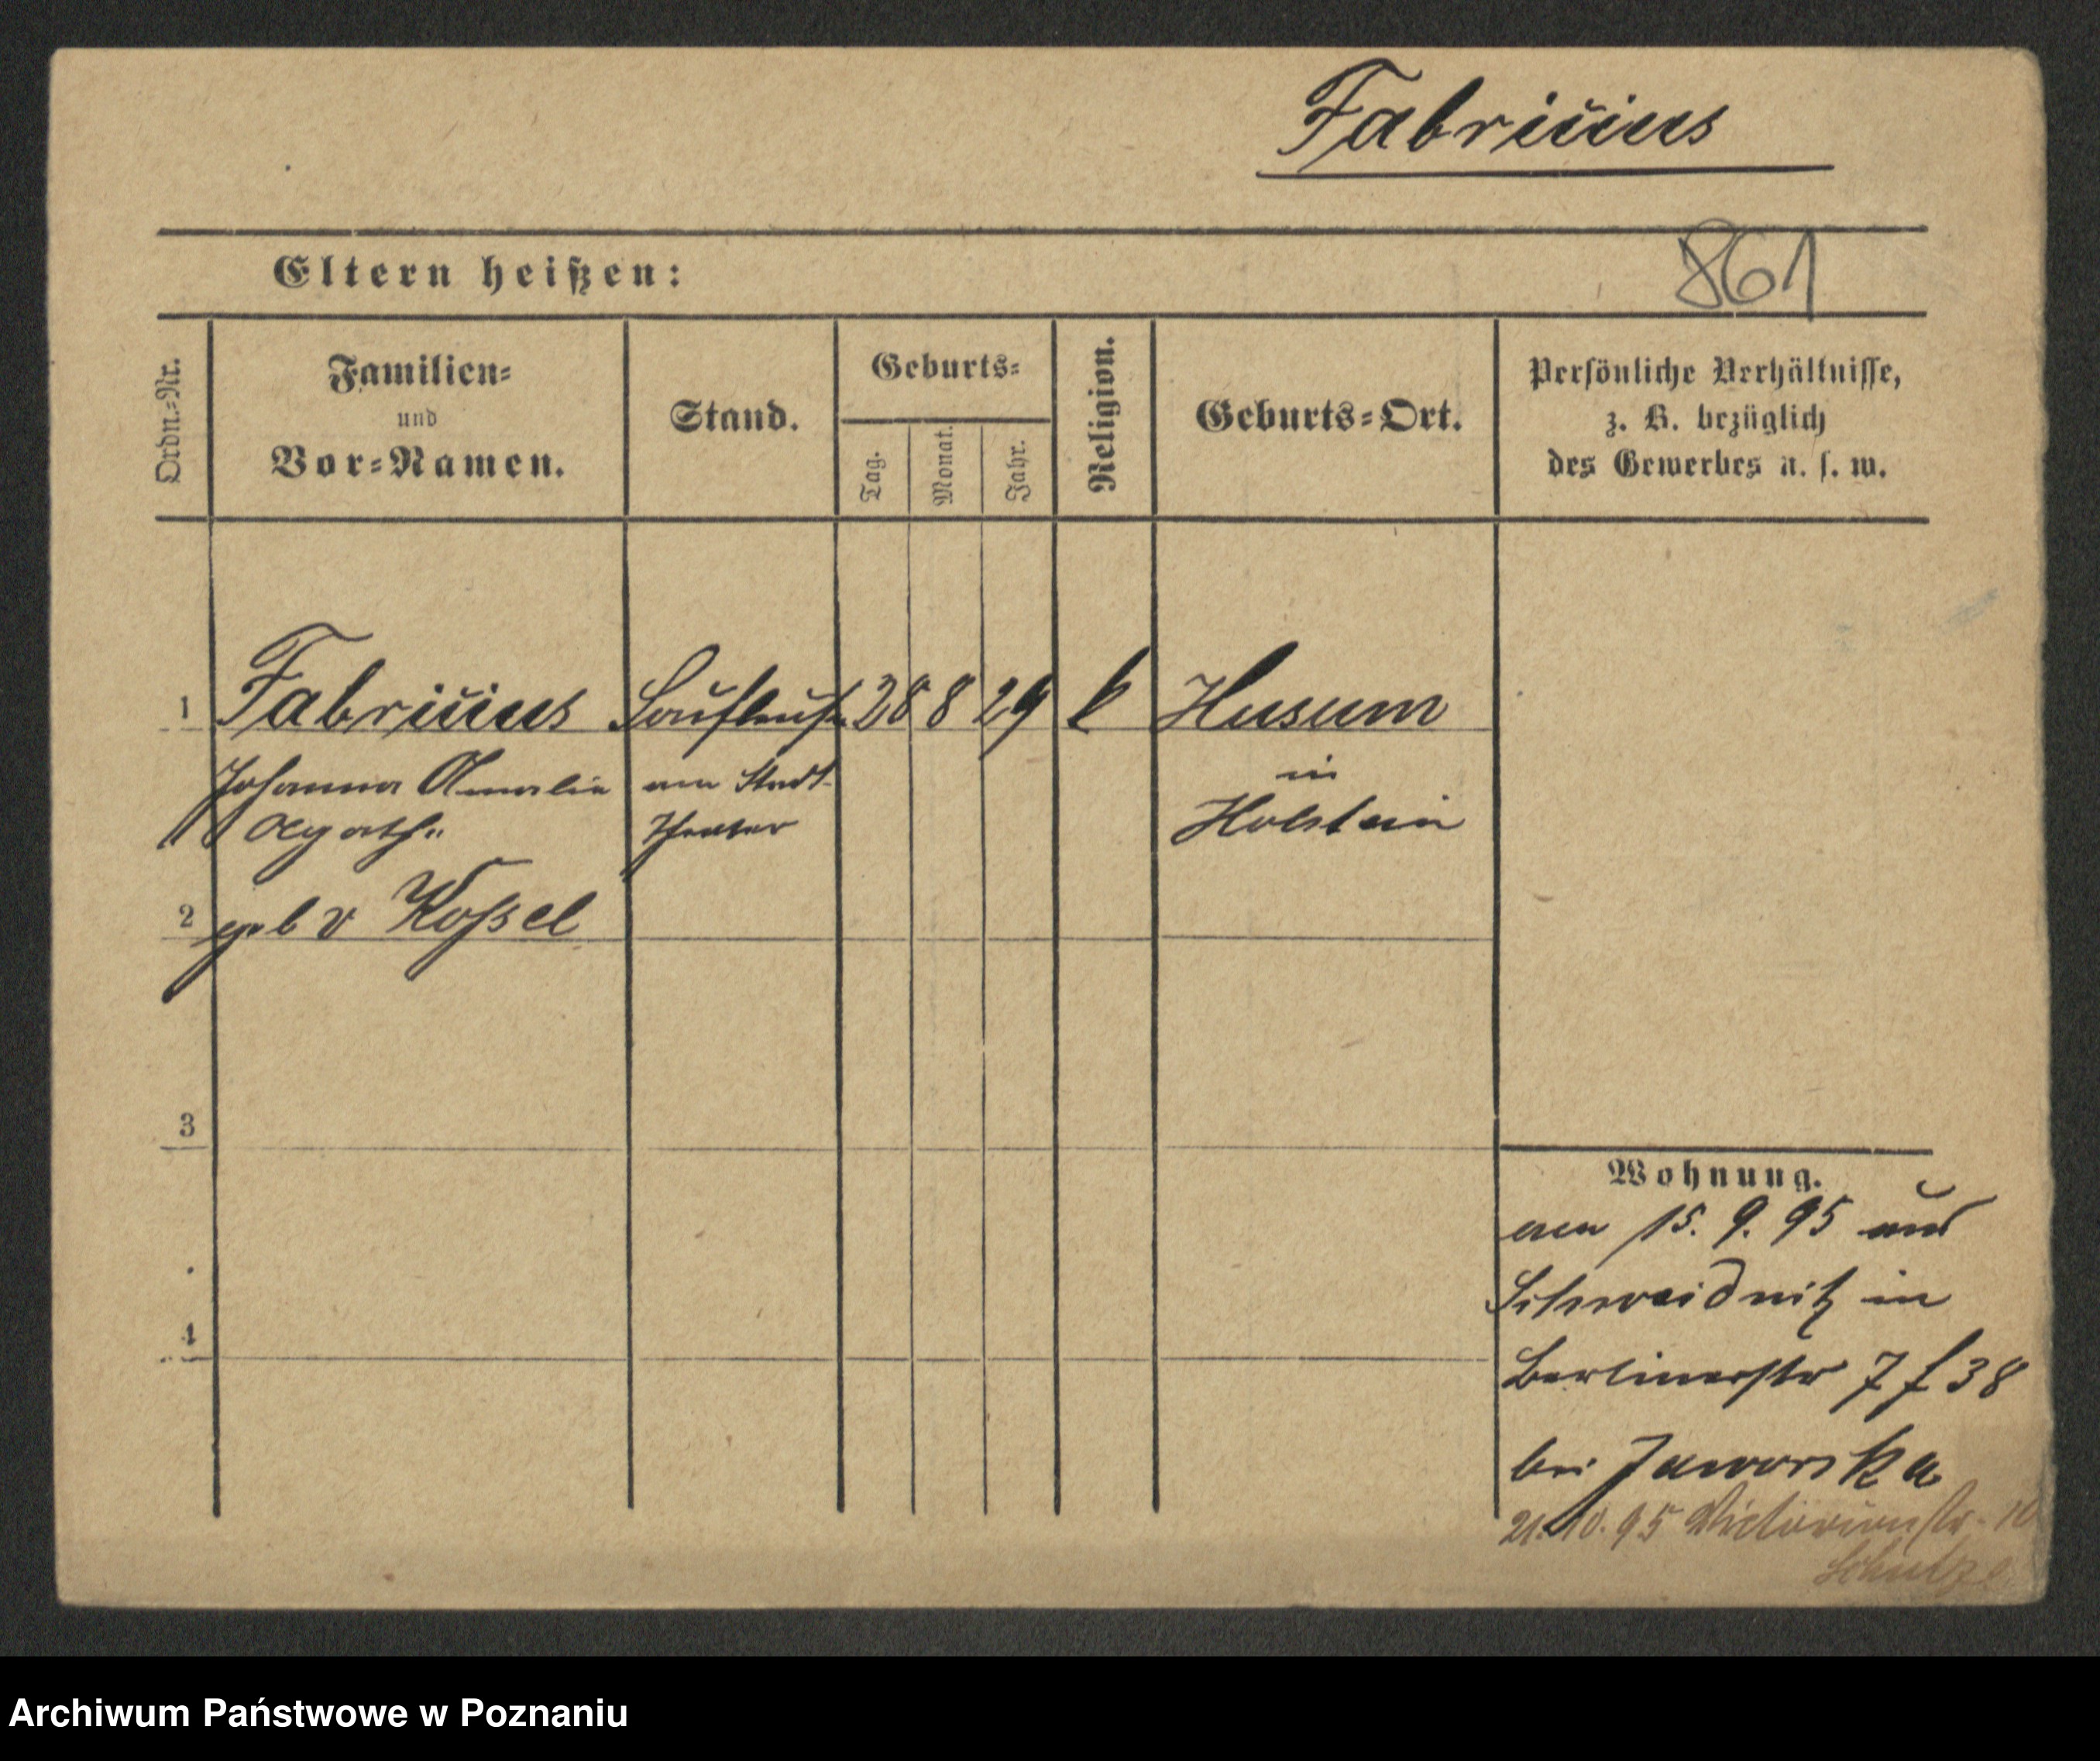 Fabricius
861
Eltern heißen:
Ordn.-Nr.
Familien-
und
Vor-Namen.
Stand.
Geburts-
Tag.
Monat.
Jahr.
Religion.
Geburts-Ort.
Persönliche Verhältnisse,
z. B. bezüglich
des Gewerbes u. s. w.
1 Fabricius Souffleuse 28 8 29 k Husum
Johanna Amalie am Stadt- in
Agathe Theater Holstein
2 geb v Koßel
3
4
Wohnung.
am 15. 9. 95 aus
Schweidnitz in
Berlinerstr 7 f 38
bei Jaworska
21.10.95 Victoriastr. 10
Schulze
Archiwum Państwowe w Poznaniu